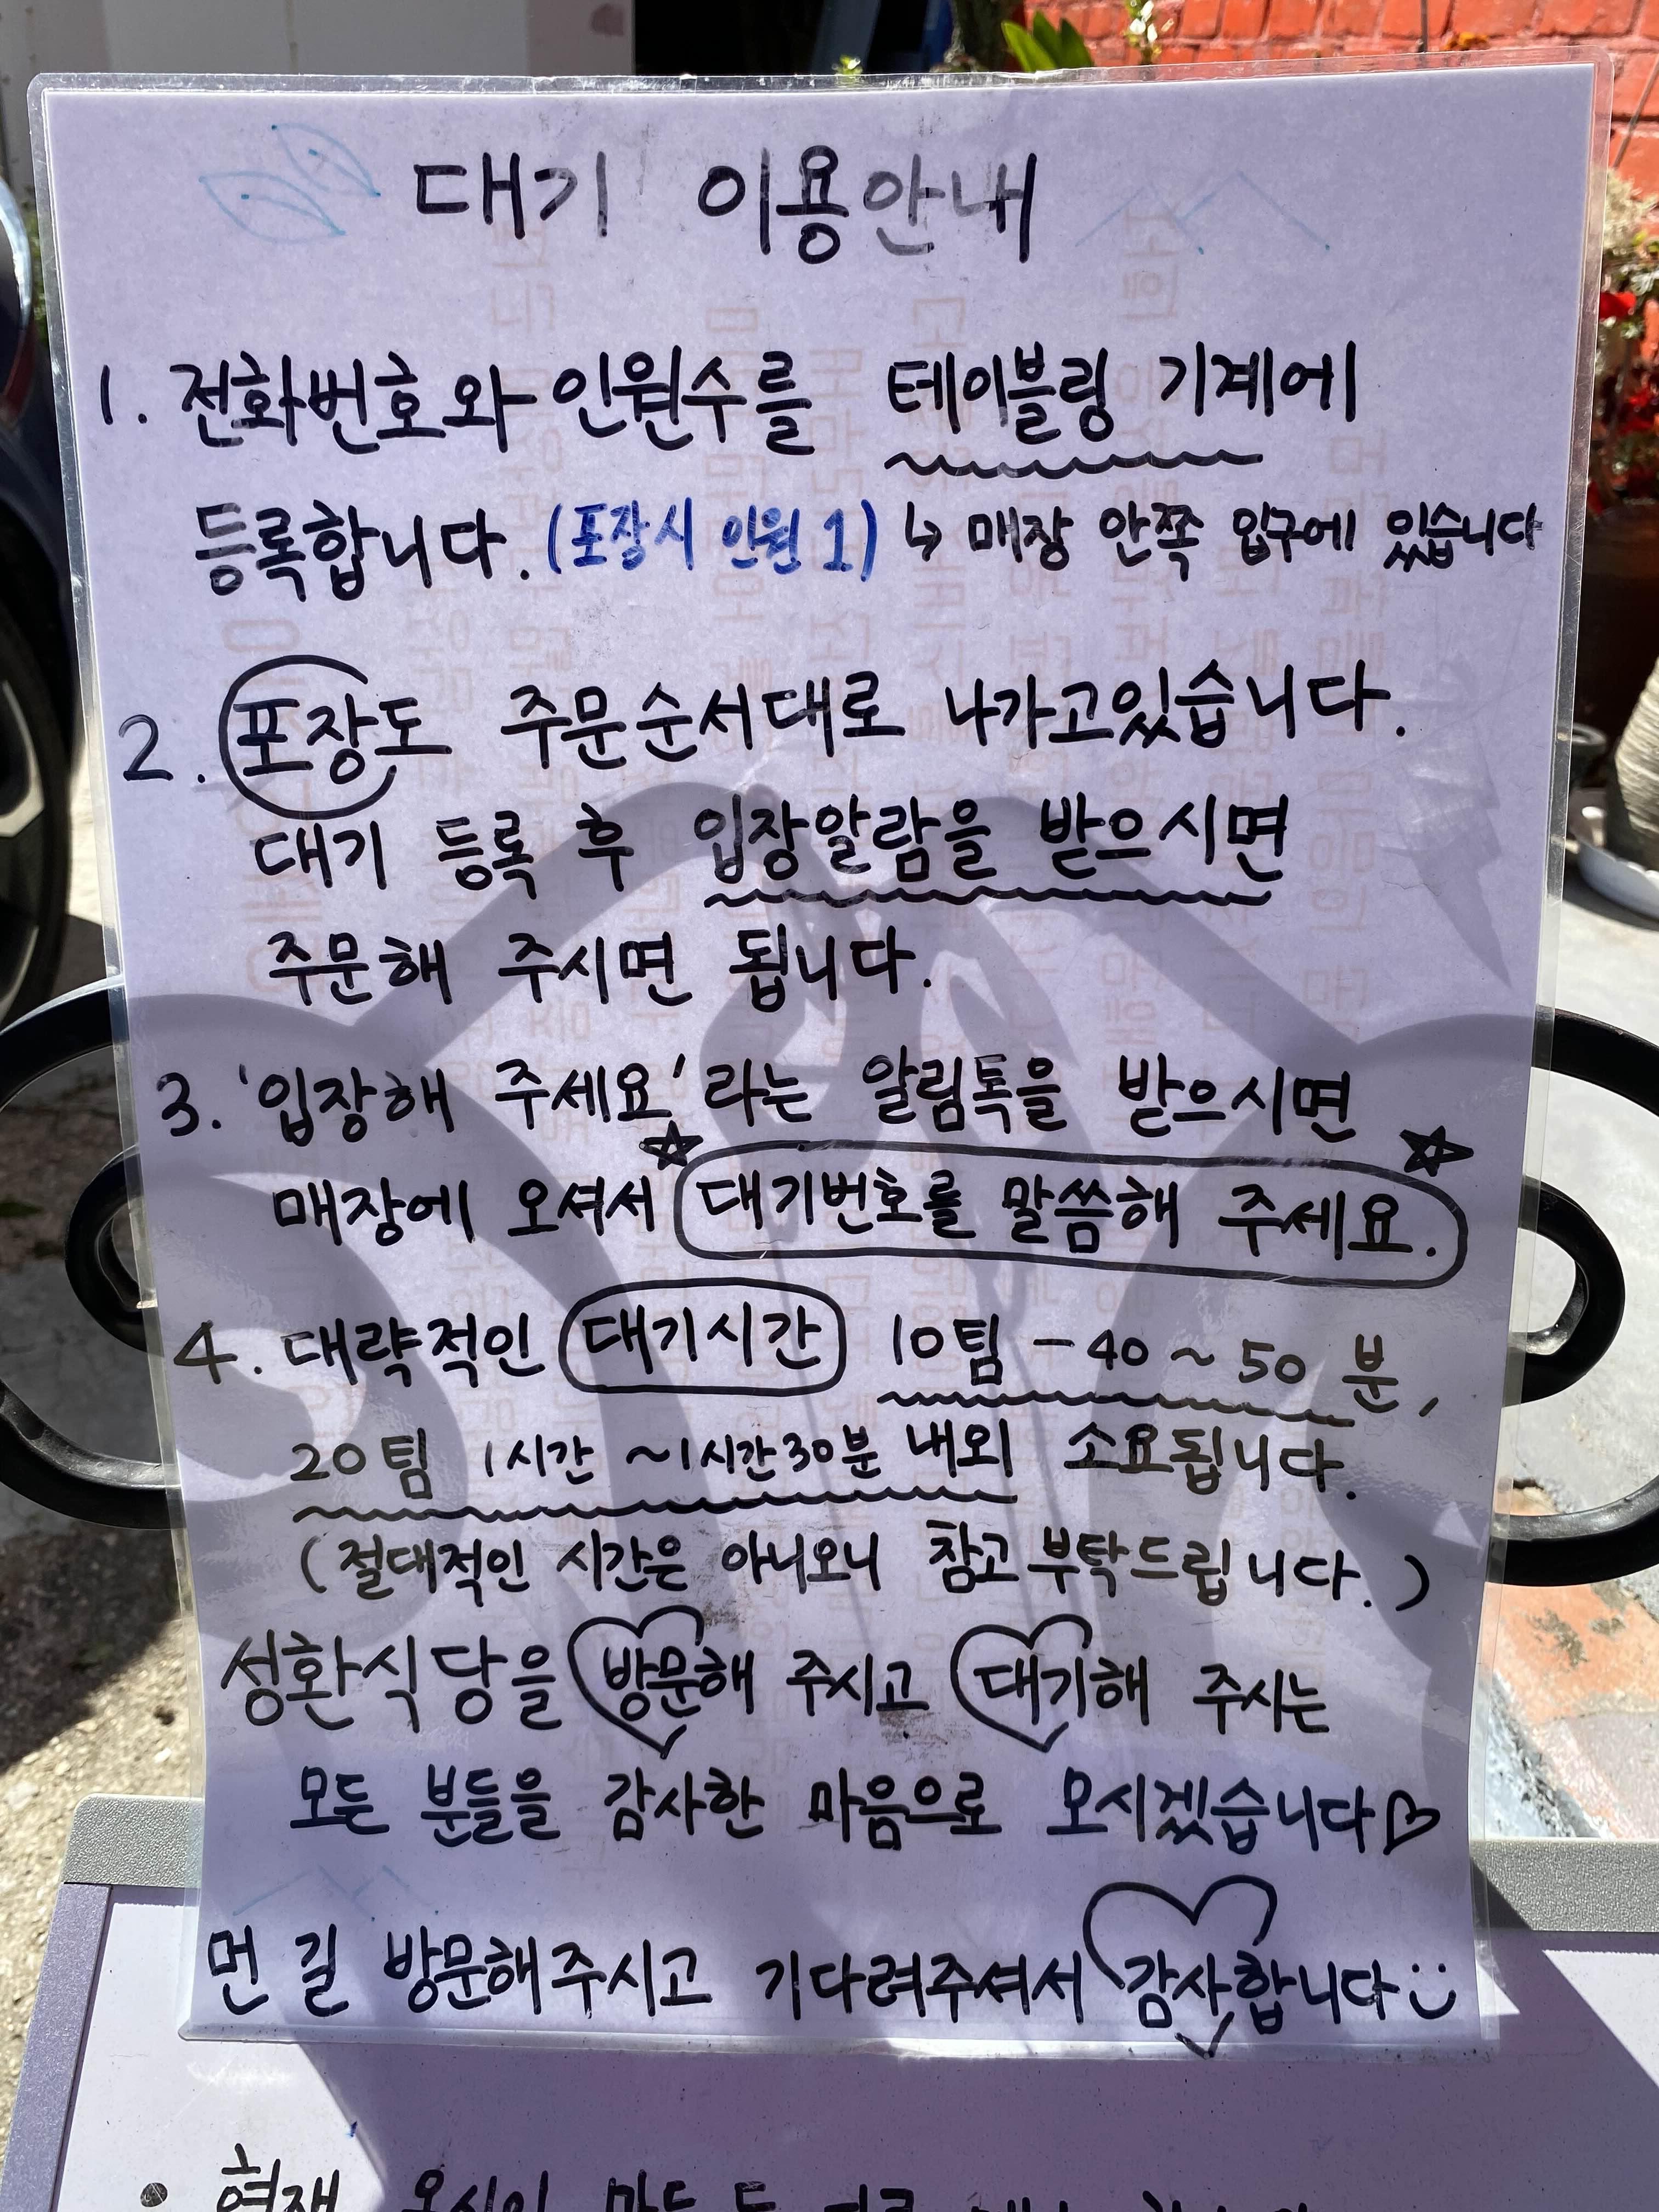 대기 이용안내
1. 전화번호와 인원수를 테이블링 기계에
등록합니다. (포장시 인원 1) ↳ 매장 안쪽 입구에 있습니다
2. 포장도 주문순서대로 나가고있습니다.
대기 등록 후 입장알람을 받으시면
주문해 주시면 됩니다.
3. '입장해 주세요' 라는 알림톡을 받으시면
매장에 오셔서 ☆대기번호를 말씀해 주세요.☆
4. 대략적인 대기시간 10팀 - 40 ~ 50 분,
20팀 1시간 ~1시간30분 내외 소요됩니다.
(절대적인 시간은 아니오니 참고 부탁드립니다.)
성환식당을 방문해 주시고 대기해 주시는
모든 분들을 감사한 마음으로 모시겠습니다♡
먼 길 방문해주시고 기다려주셔서 감사합니다
• 현재